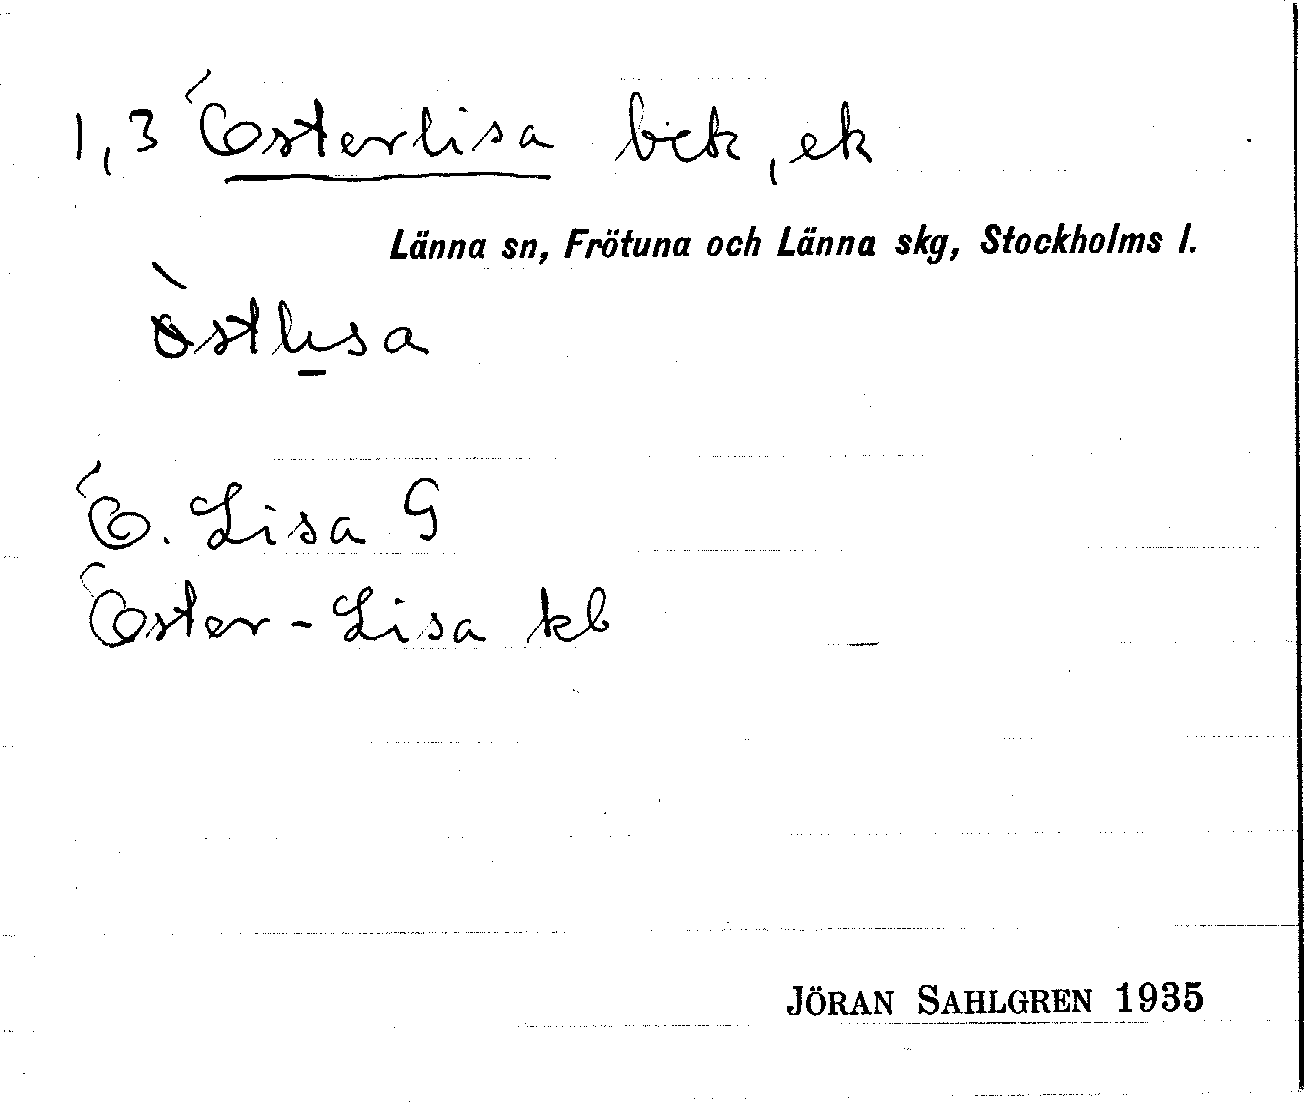 1,3 Österlisa bek, ek
Länna sn, Frötuna och Länna skg, Stockholms l.
òstlisa
Ö. Lisa G
Öster-Lisa kb
JÖRAN SAHLGREN 1935